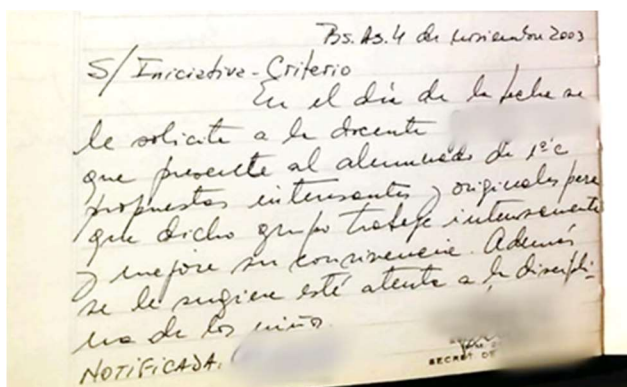 Bs. As. 4 de noviembre 2003
S/ Iniciativa - Criterio
En el día de la fecha se
le solicita a la docente
que presente al alumnado de 1º c
propuestas interesantes y originales para
que dicho grupo trabaje intensamente
y mejore su convivencia. Además
se le sugiere esté atenta a la discipli-
na de los niños.
NOTIFICADA.
SECRET DE